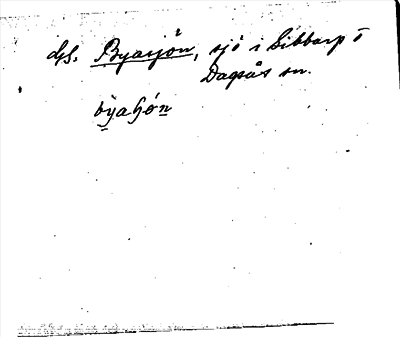 ds. Byasjön, sjö i Sibbarp i
Dagsås sn.
byahón